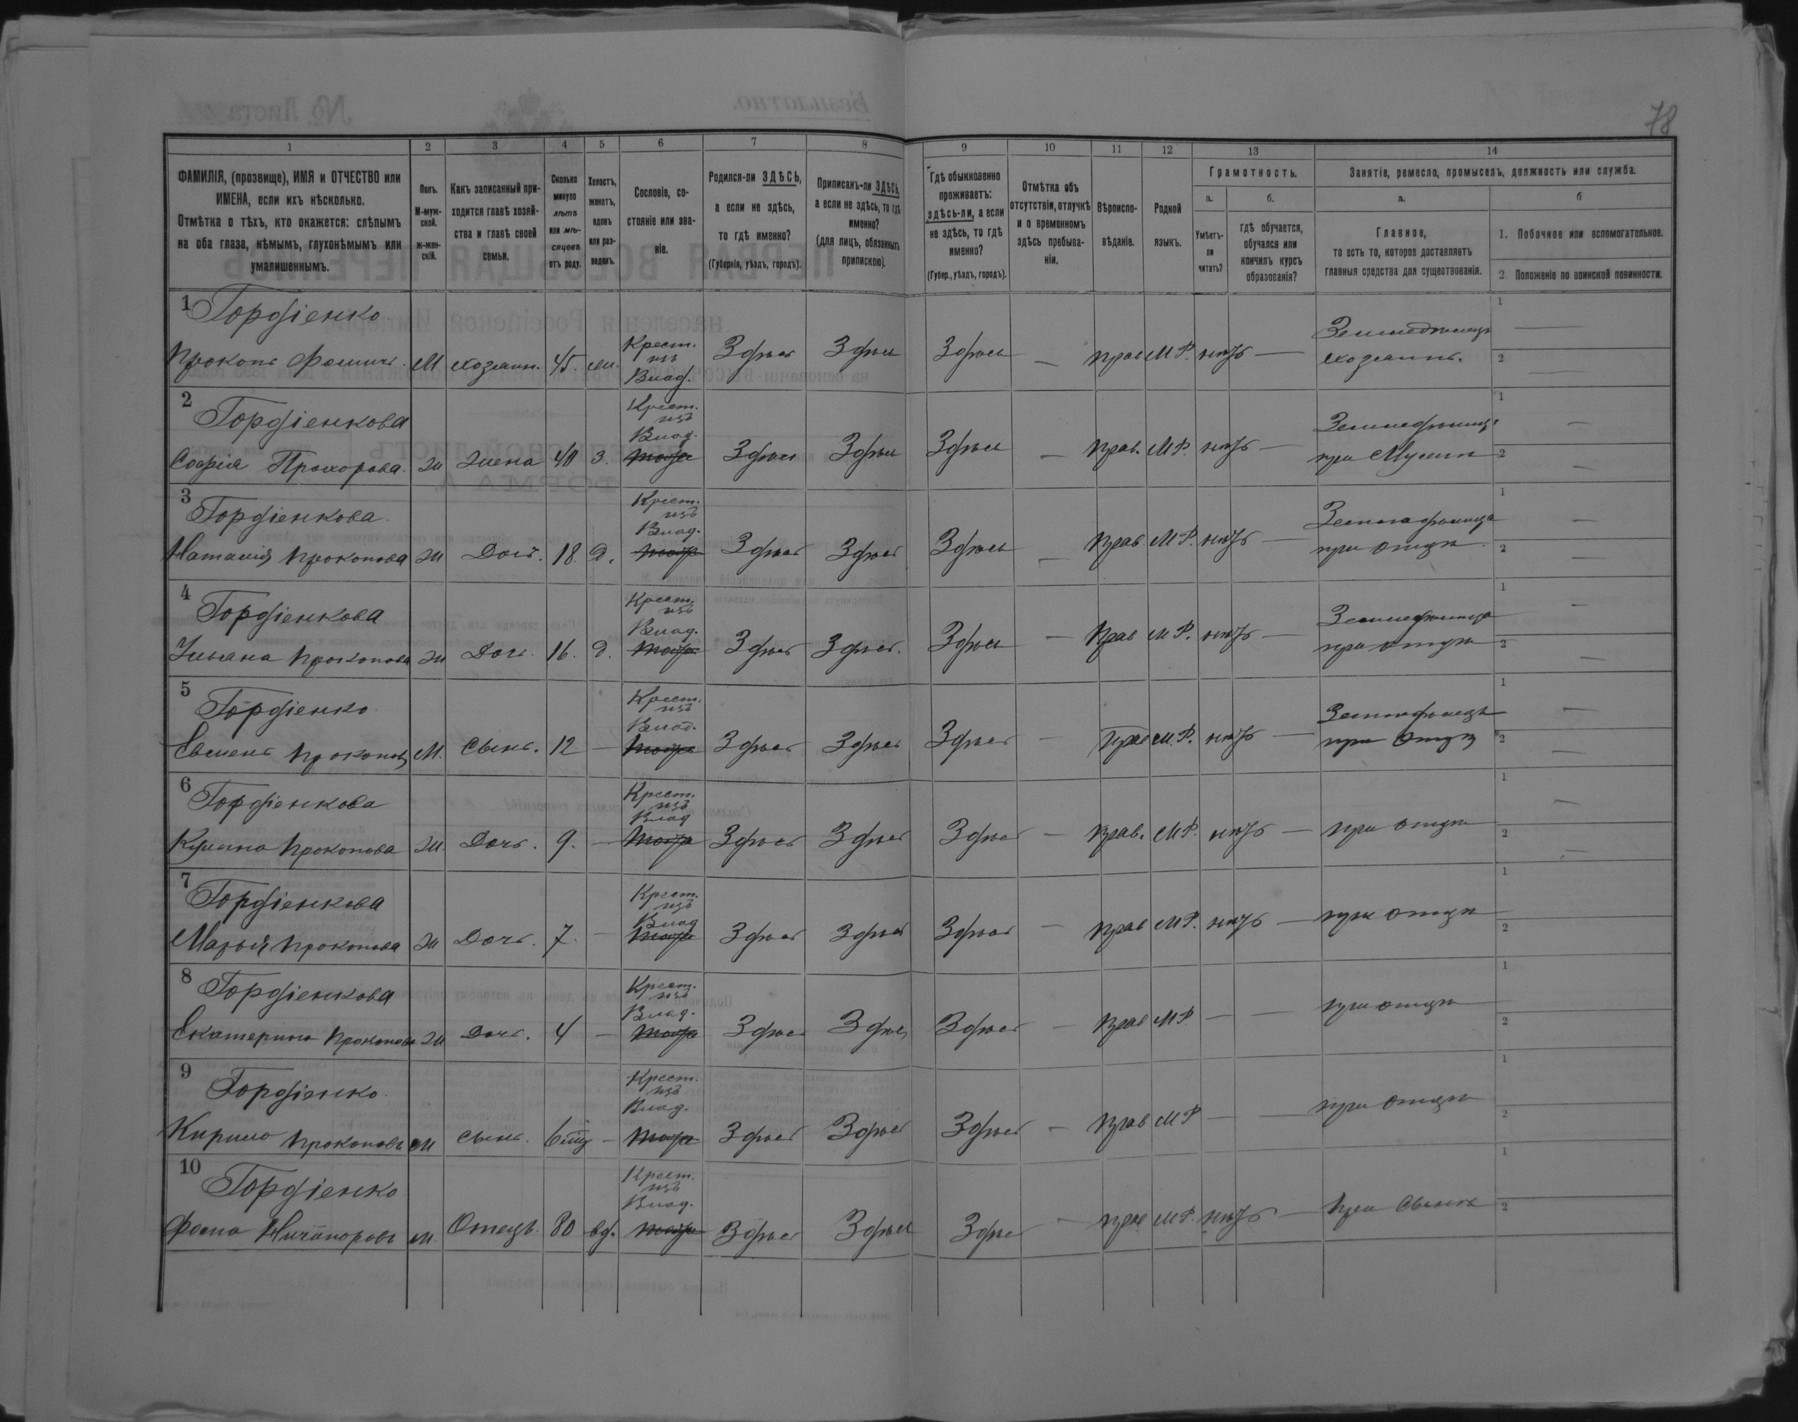 78
1 2 3 4 5 6 7 8 9 10 11 12 13 14
ФАМИЛІЯ, (прозвище), ИМЯ и ОТЧЕСТВО или
ИМЕНА, если ихъ нѣсколько.
Отмѣтка о тѣхъ, кто окажется: слѣпымъ
на оба глаза, нѣмымъ, глухонѣмымъ или
умалишеннымъ.
Полъ.
М-муж-
ской.
ж-жен-
скій.
Какъ записанный при-
ходится главѣ хозяй-
ства и главѣ своей
семьи.
Сколько
минуло
лѣтъ
или мѣ-
сяцевъ
отъ роду.
Холостъ,
женатъ,
вдовъ
или раз-
веденъ.
Сословіе, со-
стояніе или зва-
ніе.
Родился-ли ЗДѢСЬ,
а если не здѣсь,
то гдѣ именно?
(Губернія, уѣздъ, городъ).
Приписанъ-ли ЗДѢСЬ,
а если не здѣсь, то гдѣ
именно?
(для лицъ, обязанныхъ
припискою).
Гдѣ обыкновенно
проживаетъ:
здѣсь-ли, а если
не здѣсь, то гдѣ
именно?
(Губер., уѣздъ, городъ).
Отмѣтка объ
отсутствіи, отлучкѣ
и о временномъ
здѣсь пребыва-
ніи.
Вѣроиспо-
вѣданіе.
Родной
языкъ.
Грамотность.
а.
Умѣетъ-
ли
читать?
б.
Гдѣ обучается,
обучался или
кончилъ курсъ
образованія?
Занятіе, ремесло, промыселъ, должность или служба.
а.
Главное,
то есть то, которое доставляетъ
главныя средства для существованія.
б
1. Побочное или вспомогательное.
2. Положеніе по воинской повинности.
1 Гордіенко
Прокопъ Фомичъ. М хозяинъ. 45. жн. Крест. изъ Влад. Здѣсь Здѣсь Здѣсь — прав М.Р. нѣтъ — Земледѣлецъ хозяинъ. 1 — 2 —
2 Гордіенкова
Софія Прохорова ж жена 40 з. Крест. изъ Влад. Здѣсь Здѣсь Здѣсь — Прав. М.Р. нѣтъ — при Мужѣ 1 — 2 —
3 Гордіенкова
Наталія Прокопова ж Дочь. 18. д. Крест. изъ Влад. Здѣсь Здѣсь Здѣсь — Прав М.Р. нѣтъ — при отцѣ 1 — 2 —
4 Гордіенкова
Ульяна Прокопова ж Дочь. 16. д. Крест. изъ Влад. Здѣсь Здѣсь. Здѣсь — Прав М.Р. нѣтъ — при отцѣ 1 — 2 —
5 Гордіенко
Прокоповъ М. сынъ. 12 — Крест. изъ Влад. Здѣсь Здѣсь Здѣсь — Прав М.Р. нѣтъ — Земледѣлецъ при отцѣ 1 — 2 —
6 Гордіенкова
Прокопова ж Дочь. 9. — Крест. изъ Влад Здѣсь Здѣсь Здѣсь — Прав. М.Р. нѣтъ — при отцѣ 1 — 2 —
7 Гордіенкова
Марья Прокопова ж Дочь. 7. — Крест. изъ Влад Здѣсь Здѣсь Здѣсь — прав М.Р. нѣтъ — при отцѣ 1 2
8 Гордіенкова
Екатерина Прокопова ж Дочь. 4 — Крест. изъ Влад. Здѣсь Здѣсь Здѣсь — прав М.Р — — при отцѣ 1 2
9 Гордіенко
Кирило Прокоповъ м сынъ. — Крест. изъ Влад. Здѣсь Здѣсь Здѣсь — прав М.Р — — при отцѣ 1 2
10 Гордіенко
Фома Никаноровъ м. Отецъ. 80 вд. Крест. изъ Влад. Здѣсь Здѣсь Здѣсь — прав М.Р. нѣтъ — При сынѣ 1 2